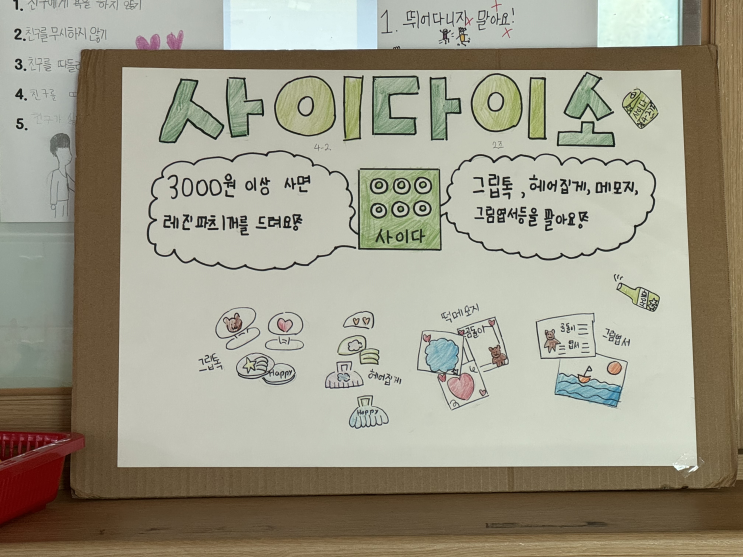 1. 친구에게 욕을 하지 않기
2. 친구를 무시하지 않기
3. 친구를 따돌리
4. 친구를
5.
1. 뛰어다니지 말아요!
사이다이소
4-2
23
3000원 이상 사면
레진파츠 1개를 드려요
사이다
그립톡, 헤어집게, 메모지,
그림엽서등을 팔아요
그립톡
Happy
헤어집게
Happy
떡메모지
곰돌이
곰돌이
엽서
그림엽서